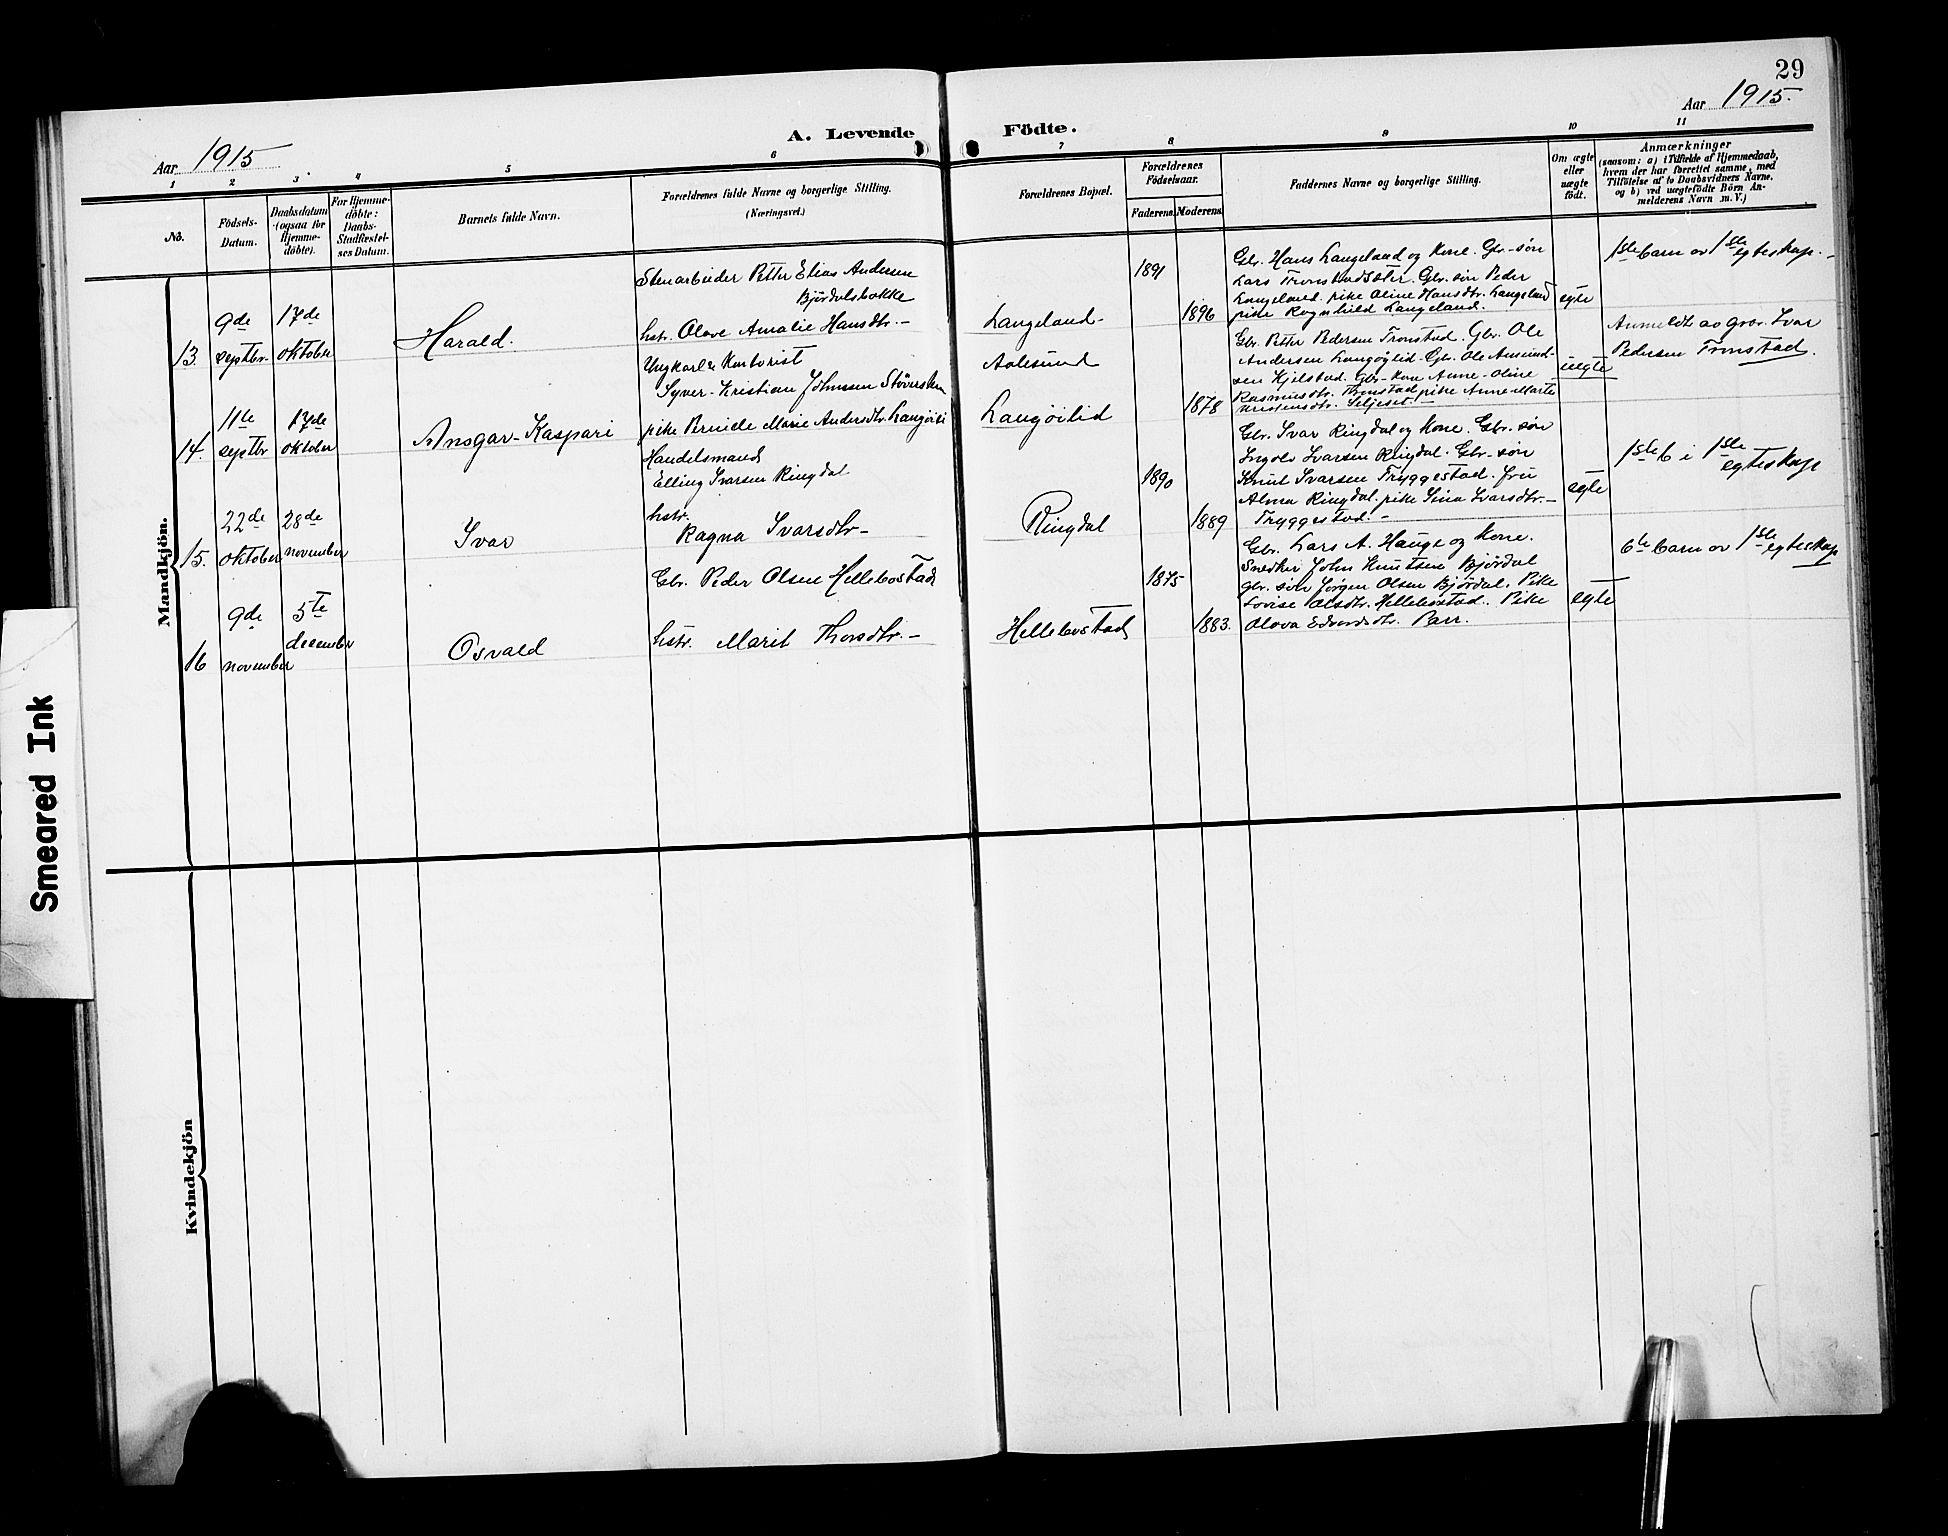 29
Aar 1915.
Aar 1915
A. Levende Födte.
1 2 3 4 5 6 7 8 9 10 11
No.
Födsels-
Datum.
Daabsdatum
(ogsaa for
Hjemme-
döbte).
For Hjemme-
döbte:
Daabs-
Stadfæstel-
ses Datum.
Barnets fulde Navn.
Forældrenes fulde Navne og borgerlige Stilling.
(Næringsvei.)
Forældrenes Bopæl.
Forældrenes
Födselsaar.
Faderens.
Moderens.
Faddernes Navne og borgerlige Stilling.
Om ægte
eller
uægte
født.
Anmærkninger
(saasom: a) i Tilfælde af Hjemmedaab,
hvem der har forrettet samme, med
Tilföielse af to Daabsvidners Navne,
og b) ved uægtefödte Börn An-
melderens Navn m. V.)
Mandkjön.
13
9de
septbr
17de
oktober
Harald.
Stenarbeider Petter Elias Andersen
Bjørdalsbakke
hstr. Olave Amalie Hansdtr.-
Langeland-
1891
1896
Gbr. Hans Langeland og Kone. Gbr.-søn
Lars Tronstadsæter. Gbr. søn Peder
Langeland. pike Oline Hansdtr. Langeland
pike Ragnhild Langeland.
egte
1ste barn av 1ste egteskap.-
14.
11te
septbr
17de
oktober
Ansgar-Kaspari
Ungkarl & Kontorist
Syver-Kristian Johnsen
pike Bernide Marie Andersdtr. Langøili
Aalesund
Langøilid
1878
Gbr. Petter Pedersen Tronstad. Gbr. Ole
Andersen Langøylid. Gbr. Ole Amund-
sen Hjelstad. Gbr-kone Anne-Oline
Rasmusdtr. Tronstad, pike Anne-Marte
Seljeset.
uegte
Anmeldt av grov. Ivar
Pedersen Tronstad.
15.
22de
oktober
28de
november
Ivar
Handelsmand
Elling Ivarsen Ringdal
hstr.
Ragna Ivarsdtr-
Ringdal
1890
1889
Gbr. Ivar Ringdal og Kone. Gbr. søn
Ingolv Ivarsen Ringdal. Gbr-søn
Knut Ivarsen Tryggestad. fru
Alma Ringdal. pike Sina Ivarsdtr.-
Tryggestad.-
egte
1ste b i 1ste
egteskap
16
9de
november
5te
december
Osvald
Gbr. Peder Olsen Hellebostad
hstr. Marit Thorsdtr.-
Hellebostad
1875
1883.
Gbr. Lars A. Hauge og Kone.
Snedker John Knutsen Bjørdal
gbr. søn Jørgen Olsen Bjørdal. Pike
Lovise Olsdtr. Hellebostad. Pike
Olova Edvardsdtr. Parr.
egte
6te barn av 1ste
egteskap
Kvindekjön
Smeared Ink